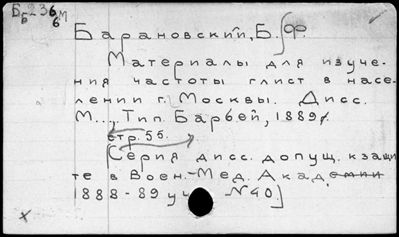 Барановский, Б. Ф.
Материалы для изуче-
ния частоты глист в насе-
лении г. Москвы. Дисс.
М..., Тип. Барбей, 1889.
стр. 55.
[Серия дисс. допущ. к защи
те в Воен.-Мед. Академии
1888-89 уч. №40.]